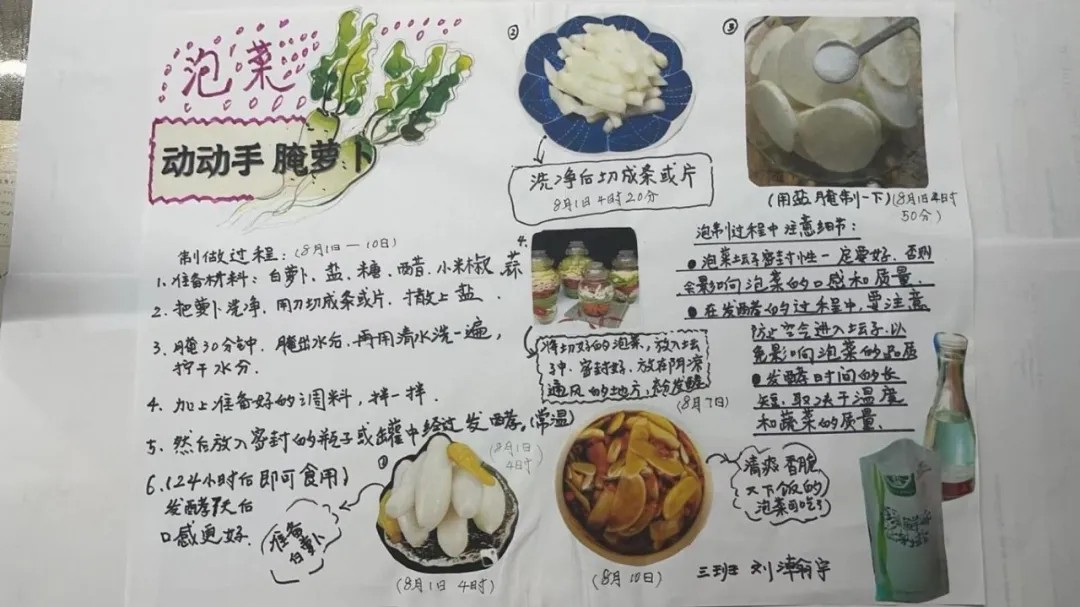 泡菜
动动手 腌萝卜
制做过程：(8月1日—10日)
1、准备材料：白萝卜、盐、糖、醋、小米椒、蒜
2、把萝卜洗净，用刀切成条或片，撒上盐．
3、腌30分钟，腌出水后，再用清水洗一遍，
拧干水分．
4、加上准备好的调料，拌一拌．
5、然后放入密封的瓶子或罐中经过发酵。(常温)
6、(24小时后即可食用)
发酵7天后
口感更好．
①
(8月1日
4时)
准备
白萝卜
(8月1日 4时)
②
洗净后切成条或片
8月1日4时20分
③
(用盐腌制一下)
(8月1日4时
50分)
4.
将切好的泡菜，放入坛
子中，密封好，放在阴凉
通风的地方，发酵
(8月7日)
(8月10日)
清爽 香脆
下饭的
泡菜可吃了
泡制过程中注意细节：
●泡菜坛子密封性一定要好，否则
会影响泡菜的口感和质量．
●在发酵的过程中，要注意
防止空气进入坛子，以
免影响泡菜的品质
●发酵时间的长
短，取决于温度
和蔬菜的质量、
三班 刘